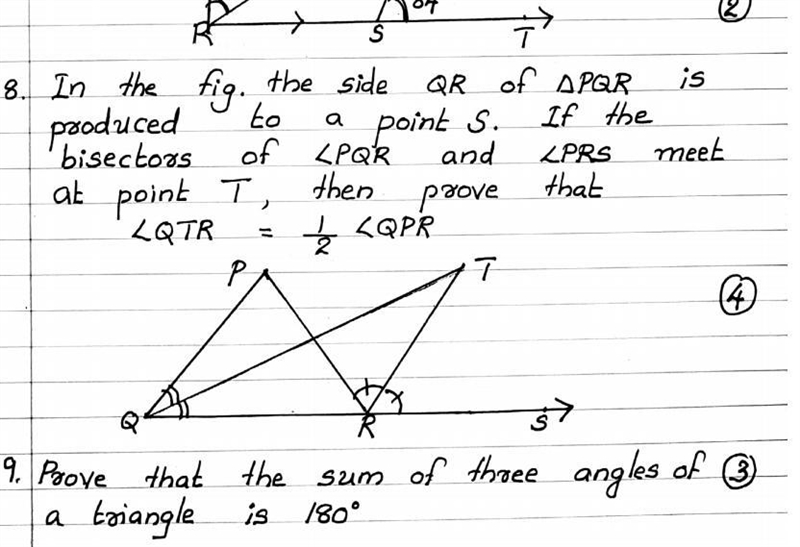 R S 64 T (2)
8. In the fig. the side QR of △PQR is
produced to a point S. If the
bisectors of ∠PQR and ∠PRS meet
at point T, then prove that
∠QTR = 1/2 ∠QPR
P T
(4)
Q R S
9. Prove that the sum of three angles of (3)
a triangle is 180°